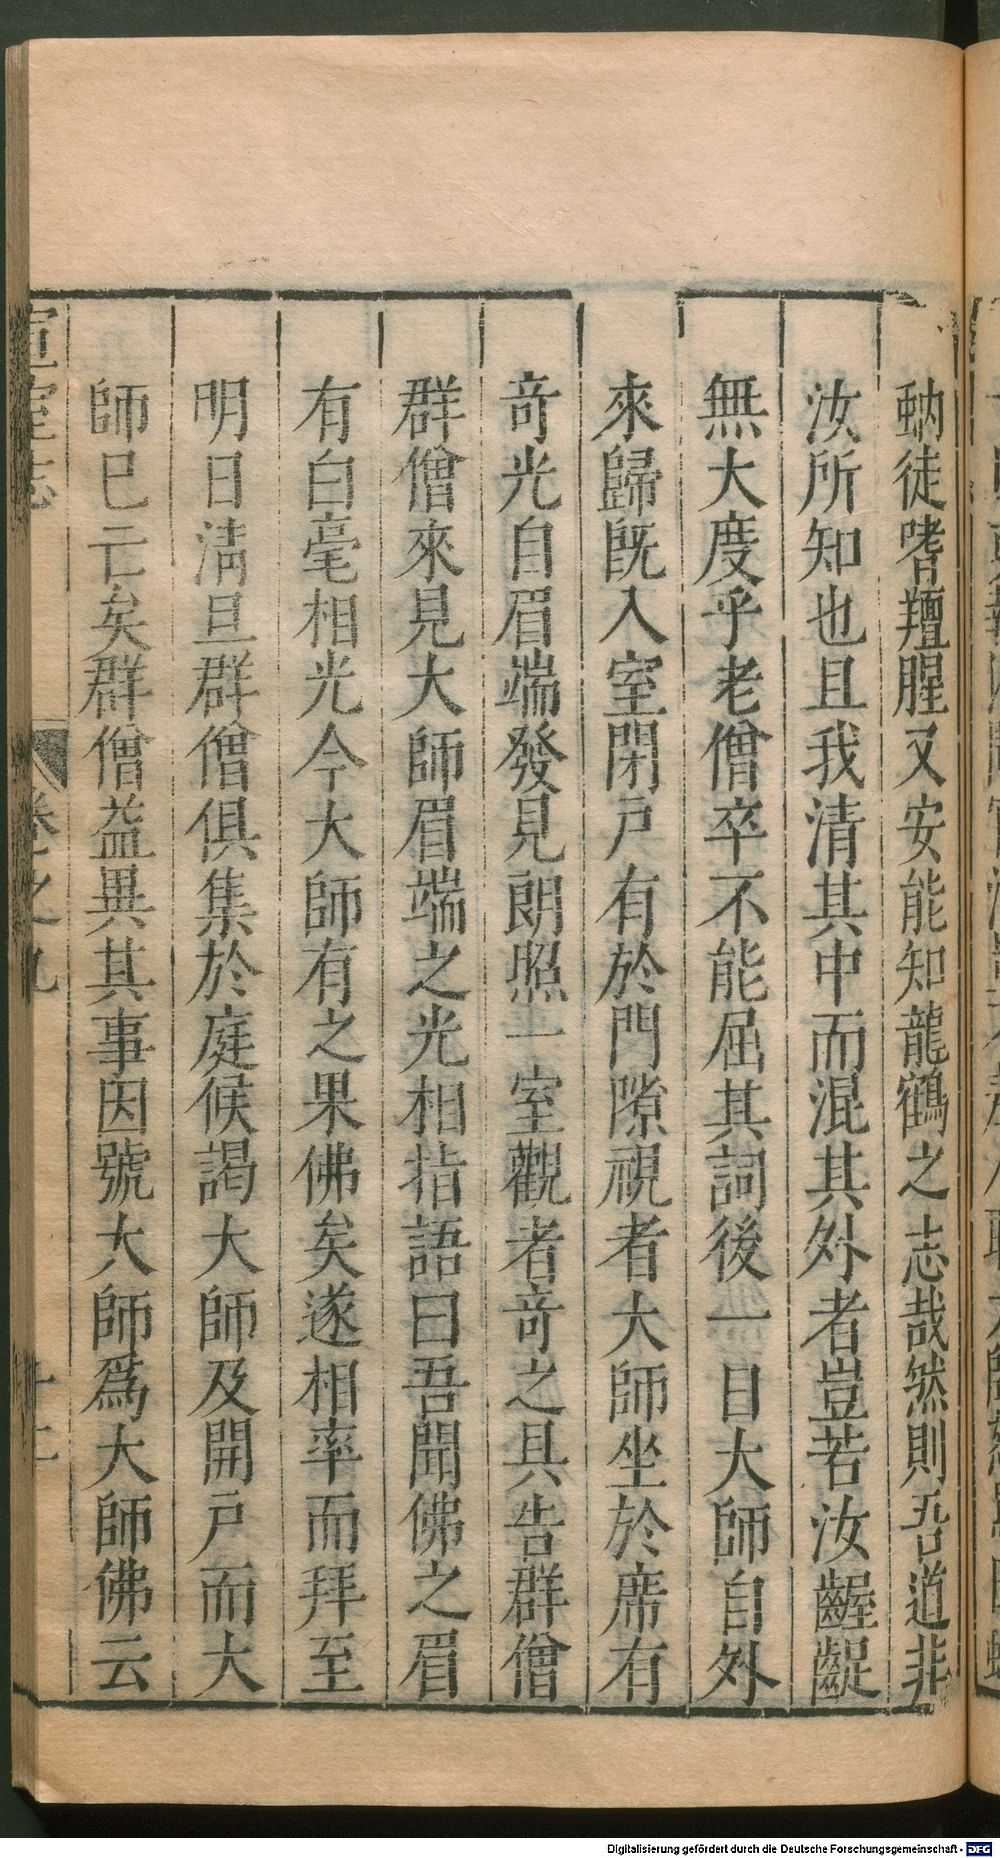 蚋徒嗜羶腥又安能知龍鶴之志哉然則吾道非
汝所知也且我清其中而混其外者豈若汝齷齪
無大度乎老僧卒不能屈其詞後一目大師自外
來歸既入室閉戸有於門隙視者大師坐於席有
奇光自眉端發見朗照一室觀者奇之具告群僧
群僧來見大師眉端之光相指語曰吾聞佛之眉
有白毫相光今大師有之果佛矣遂相率而拜至
明日淸旦群僧俱集於庭候謁大師及開戸而大
師巳亡矣群僧益異其事因號大師爲大師佛云
宣室志
卷之九
Digitalisierung gefördert durch die Deutsche Forschungsgemeinschaft - DFG